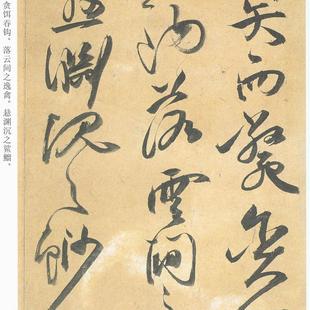 矢而斃貪
鉤落雲間之
懸淵沉之魦
贪饵吞钩、落云间之逸禽。悬渊沉之鲨鰡、